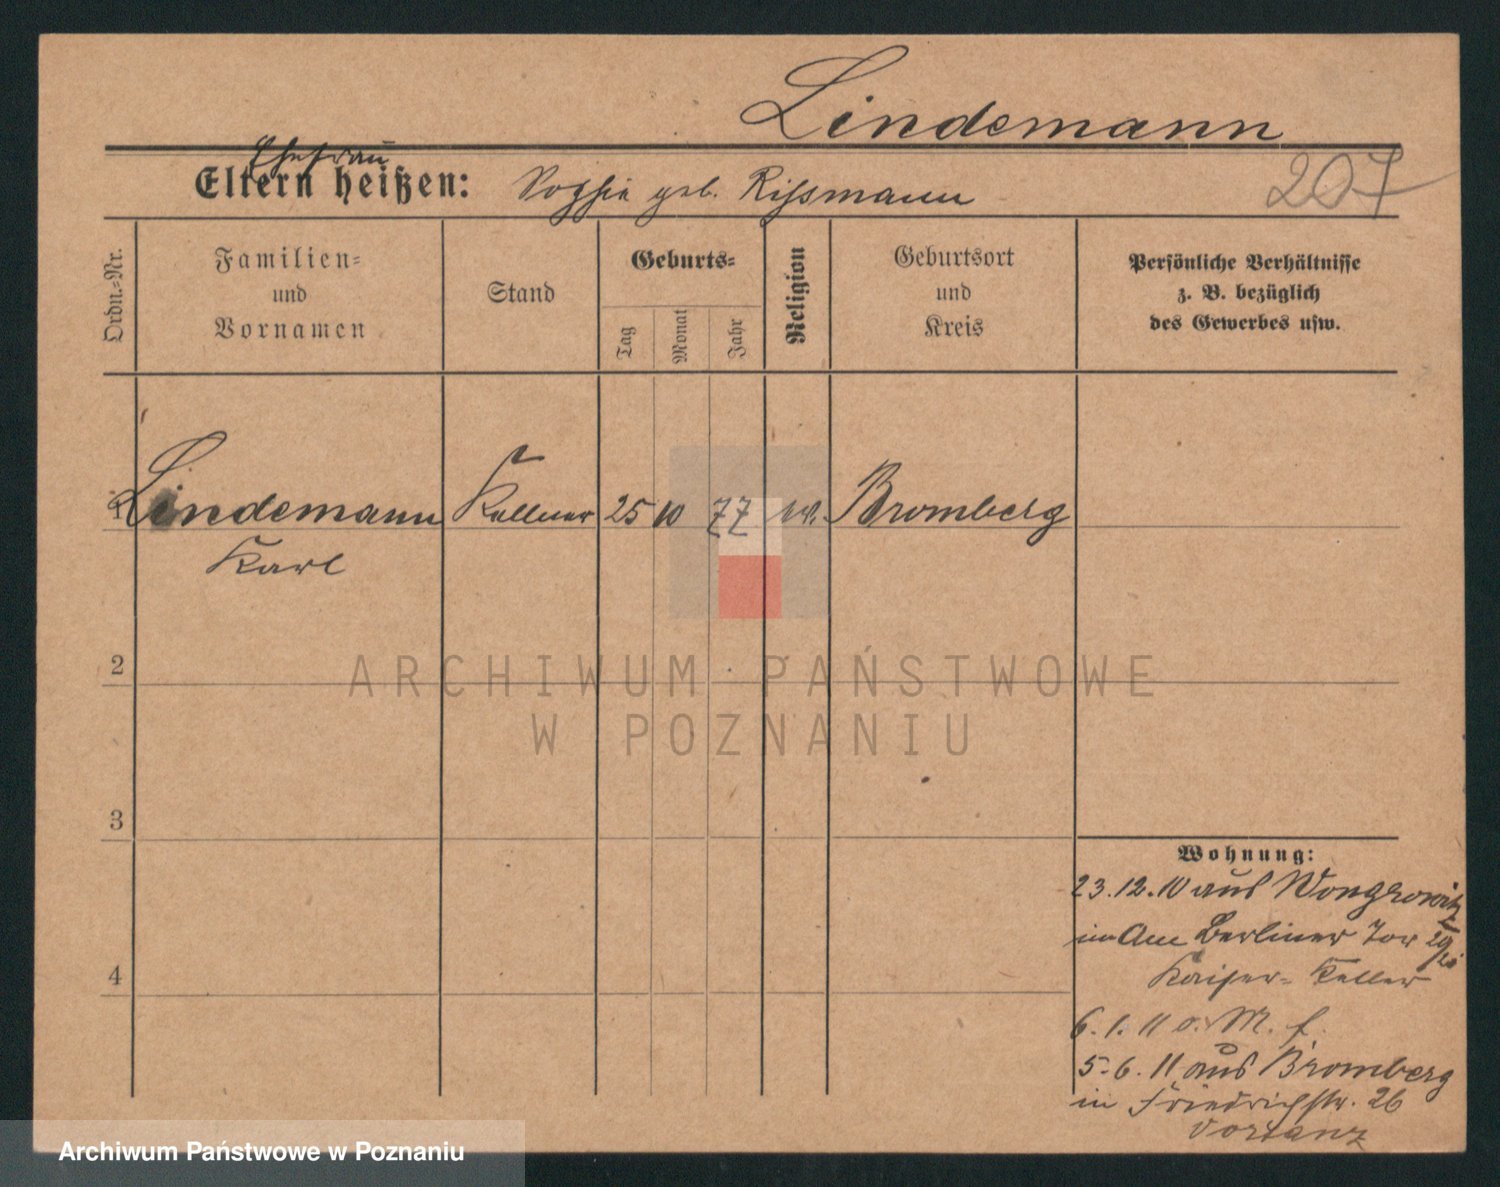 Lindemann
Ehefrau
Eltern heißen: Sophie geb. Rissmann
207
Ordn.-Nr.
Familien-
und
Vornamen
Stand
Geburts-
Tag
Monat
Jahr
Religion
Geburtsort
und
Kreis
Persönliche Verhältnisse
z. B. bezüglich
des Gewerbes usw.
1 Lindemann Kellner 25 10 77 Bromberg
Karl
2
ARCHIWUM PAŃSTWOWE
W POZNANIU
3
4
Wohnung:
23.12.10 aus Wongrowitz
Am Berliner Tor
Kaiser-Keller
6.1.11
5.6.11 aus Bromberg
in Friedrichstr. 26
Archiwum Państwowe w Poznaniu